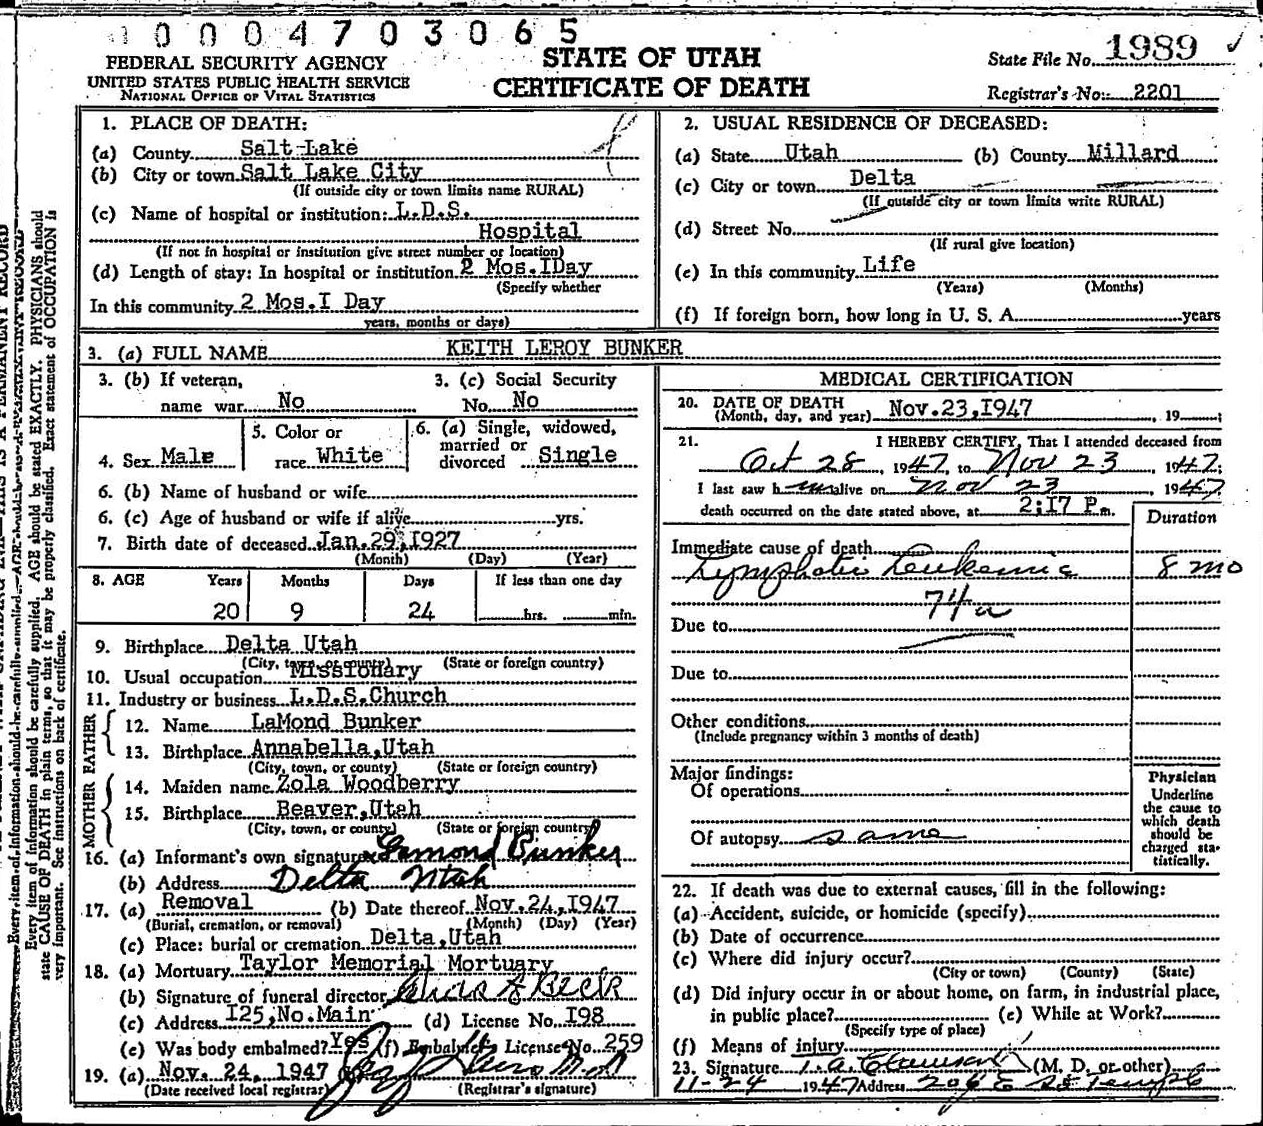 0004703065
FEDERAL SECURITY AGENCY
UNITED STATES PUBLIC HEALTH SERVICE
NATIONAL OFFICE OF VITAL STATISTICS
STATE OF UTAH
CERTIFICATE OF DEATH
State File No. 1989
Registrar's No. 2201
1. PLACE OF DEATH:
(a) County Salt Lake
(b) City or town Salt Lake City
(If outside city or town limits name RURAL)
(c) Name of hospital or institution: L.D.S.
Hospital
(If not in hospital or institution give street number or location)
(d) Length of stay: In hospital or institution 2 Mos.IDay
(Specify whether
In this community 2 Mos.I Day
years, months or days)
2. USUAL RESIDENCE OF DECEASED:
(a) State Utah (b) County Millard
(c) City or town Delta
(If outside city or town limits write RURAL)
(d) Street No.
(If rural give location)
(e) In this community Life
(Years) (Months)
(f) If foreign born, how long in U. S. A. years
3. (a) FULL NAME KEITH LEROY BUNKER
3. (b) If veteran,
name war No
3. (c) Social Security
No. No
4. Sex Male
5. Color or
race White
6. (a) Single, widowed,
married or
divorced Single
6. (b) Name of husband or wife
6. (c) Age of husband or wife if alive yrs.
7. Birth date of deceased Jan.29,I927
(Month) (Day) (Year)
8. AGE Years Months Days If less than one day
20 9 24 hrs. min.
9. Birthplace Delta Utah
(City, town, or county) (State or foreign country)
10. Usual occupation Missionary
11. Industry or business L.D.S.Church
FATHER
12. Name LaMond Bunker
13. Birthplace Annabella,Utah
(City, town, or county) (State or foreign country)
MOTHER
14. Maiden name Zola Woodberry
15. Birthplace Beaver,Utah
(City, town, or county) (State or foreign country)
16. (a) Informant's own signature Lamond Bunker
(b) Address Delta Utah
17. (a) Removal (b) Date thereof Nov.24,I947
(Burial, cremation, or removal) (Month) (Day) (Year)
(c) Place: burial or cremation Delta,Utah
18. (a) Mortuary Taylor Memorial Mortuary
(b) Signature of funeral director Beck
(c) Address I25,No.Main (d) License No. I98
(e) Was body embalmed? Yes (f) Embalmer's License No. 259
19. (a) Nov. 24, 1947
(Date received local registrar) (Registrar's signature)
MEDICAL CERTIFICATION
20. DATE OF DEATH
(Month, day, and year) Nov.23,I947, 19
21. I HEREBY CERTIFY, That I attended deceased from
Oct 28, 1947, to Nov 23, 1947;
I last saw him alive on Nov 23, 1947
death occurred on the date stated above, at 2:I7 P m.
Duration
Immediate cause of death
Lymphatic Leukemia 8 mo
74a
Due to
Due to
Other conditions
(Include pregnancy within 3 months of death)
Major findings:
Of operations
Of autopsy same
Physician
Underline
the cause to
which death
should be
charged sta-
tistically.
22. If death was due to external causes, fill in the following:
(a) Accident, suicide, or homicide (specify)
(b) Date of occurrence
(c) Where did injury occur?
(City or town) (County) (State)
(d) Did injury occur in or about home, on farm, in industrial place,
in public place? (e) While at Work?
(Specify type of place)
(f) Means of injury
23. Signature (M. D. or other)
11-24 1947 Address 206 E So Temple
Every item of information should be carefully supplied. AGE should be stated EXACTLY. PHYSICIANS should
state CAUSE OF DEATH in plain terms, so that it may be properly classified. Exact statement of OCCUPATION is
very important. See instructions on back of certificate.